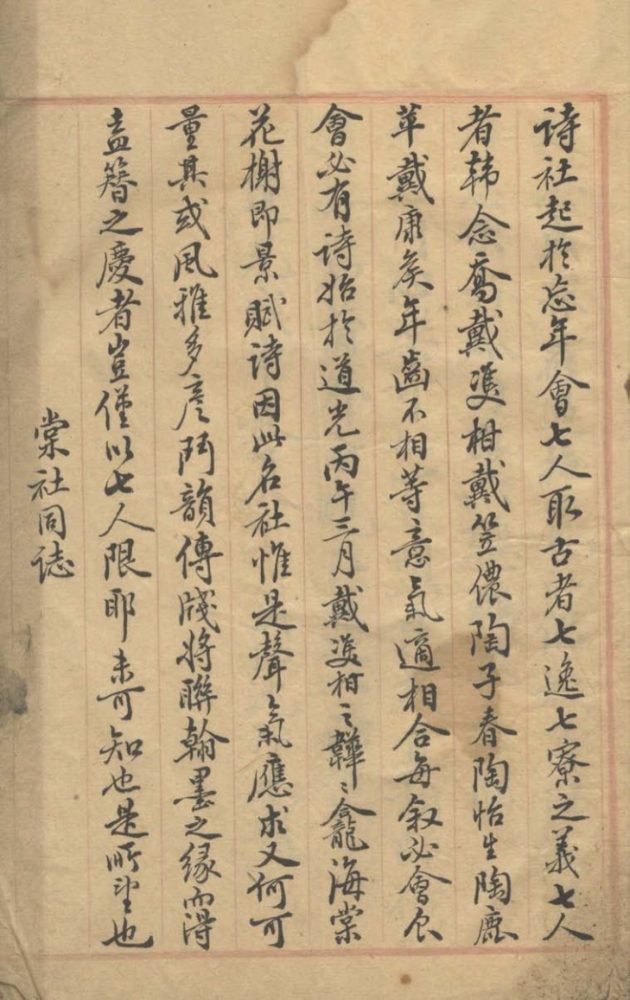 詩社起於忘年會七人取古者七逸七寮之義七人
者韩念喬戴䨇柑戴笠儂陶子春陶怡生陶鹿
苹戴康矦年齒不相等意氣適相合每叙必會合
會必有詩始於道光丙午三月戴䨇柑之韡韡龕海棠
花榭即景賦詩因此名社惟是聲氣應求又何可
量其或風雅多彦鬥韻傳牋將聯翰墨之缘而得
盍簪之慶者豈僅以七人限耶未可知也是所望也
棠社同誌